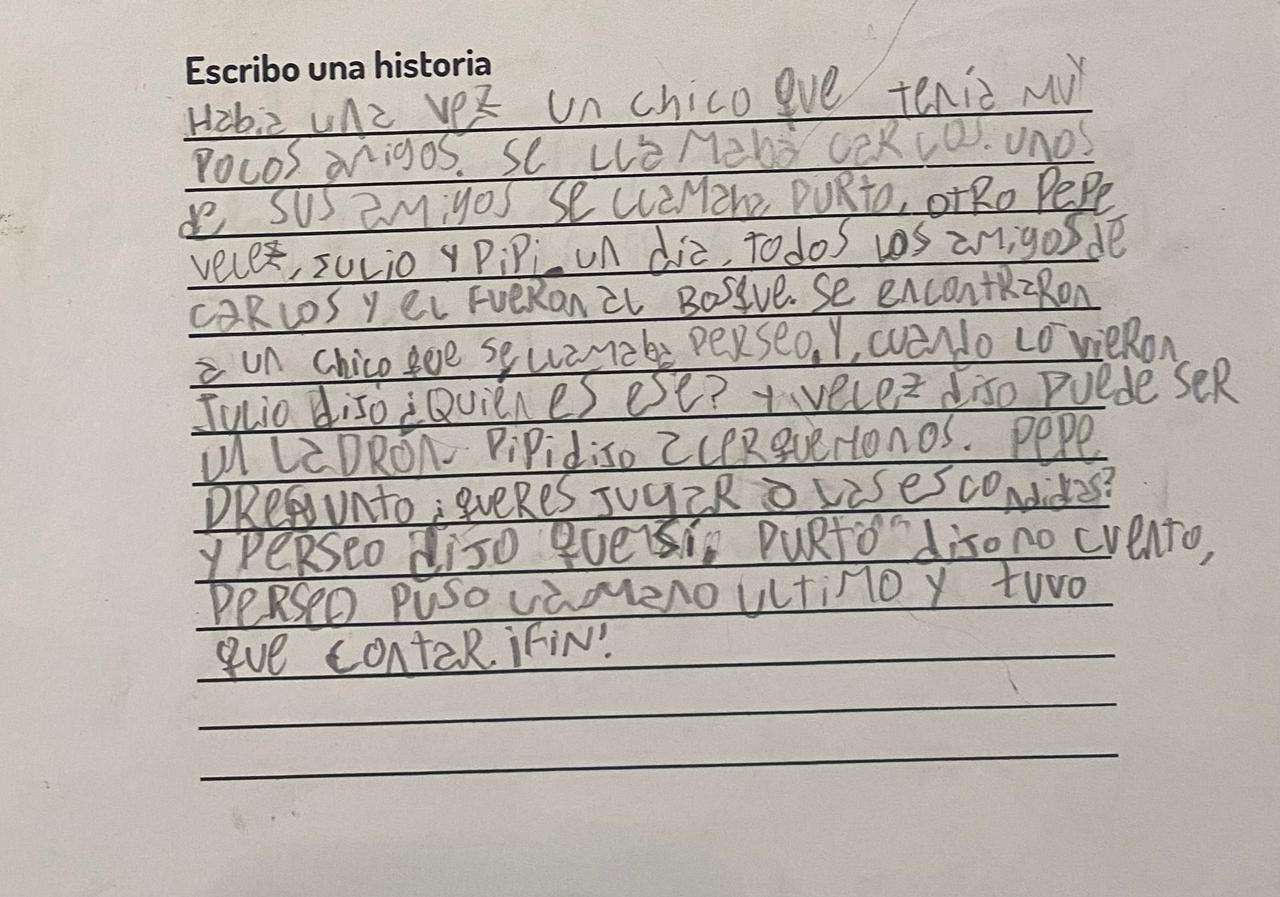 Escribo una historia
Habia una vez un chico que tenía muy
pocos amigos. se llamaba carlos. unos
de sus amigos se llamaba purto, otro pepe
velez, julio y pipi. un dia, todos los amigos de
carlos y el fueron al bosque. se encontraron
a un chico que se llamaba perseo, y, cuando lo vieron
Julio dijo ¿Quien es ese? y velez dijo puede ser
un ladrón. pipi dijo acerquemonos. pepe
pregunto ¿queres jugar a las escondidas?
y perseo dijo que sí, purto dijo no cuento,
perseo puso la mano ultimo y tuvo
que contar. ¡FIN!